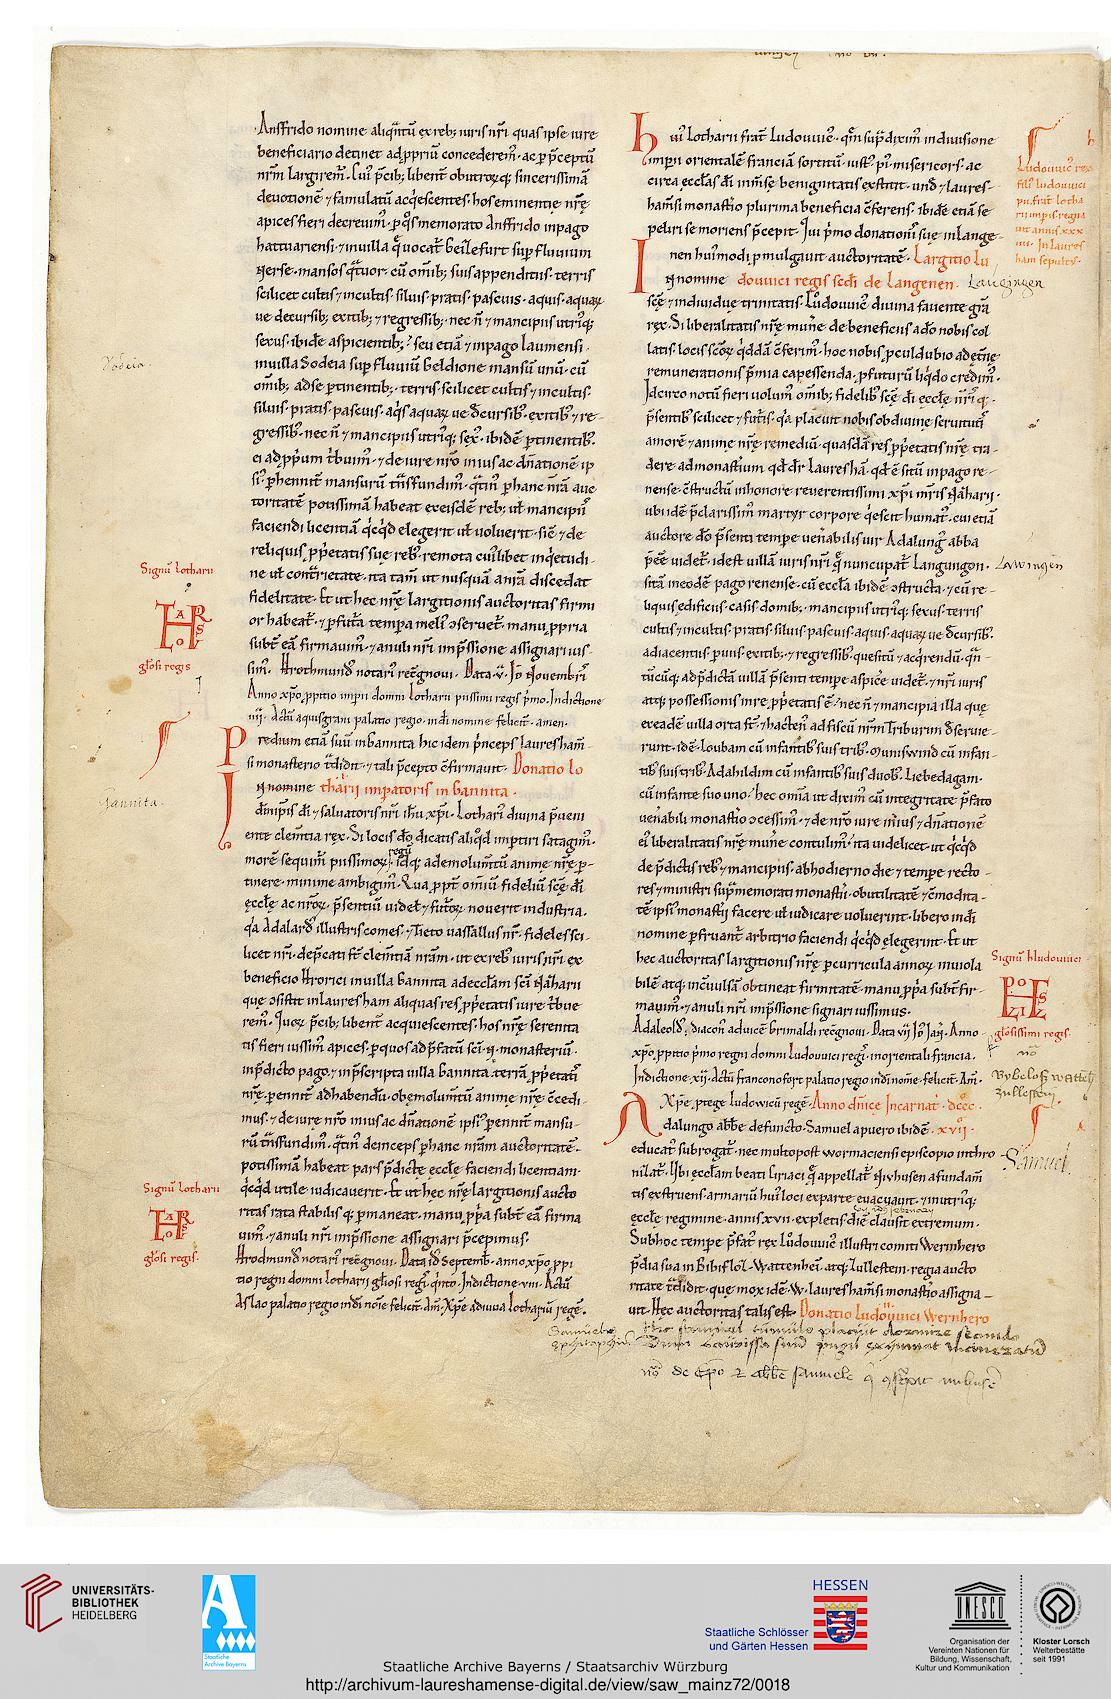 Anffrido nomine aliqᵃntū ex reb; iuris nr̄i quas ipse iure
beneficiario detinet ad ꝓpriū concederem̄. ac ꝑ p̄ceptū
nr̄m largirem̄. Cuī p̄cib; libent̄ obutrorūq; sincerissimā
deuotionē ⁊ famulatū acq̇escentes. hos eminentię nr̄ę
apices fieri decreuim̄. ꝑ q̊s memorato Anffrido in pago
hattuariensi. ⁊ in uilla q̄ uocat̄ geilefurt sup̄ fluuium
Nerse. mansos q̄tuor. cū om̄ib; suis appenditiis. terris
scilicet cultis ⁊ incultis. siluis. pratis. pascuis. aquis. aquaꝝ
ue decursib; exitib; ⁊ regressib; nec n̄ ⁊ mancipiis utriq;
sexus. ibidē aspicientib;
in uilla Sodeia sup̄ fluuiū Geldione mansū unū. cū
om̄ib; ad se ꝑtinentib;. terris scilicet cultis ⁊ incultis.
siluis. pratis. pascuis. aq̇s aquaꝝ ue d̄cursib; exitib; ⁊ re-
gressib;. nec n̄ ⁊ mancipiis utriq; sex̄. ibidē ꝑtinentib;.
toritatē potissimā habeat ex eisdē reb; uł mancipiis
faciendi licentiā q̇cq̇d elegerit uł uoluerit. sic̄ ⁊ de
reliquis ꝓp̄etatis suę reb;. remota cuīlibet inq̇etudi-
ne uł cont̄rietate. ita tam̄ ut nusquā a nr̄a discedat
fidelitate. Et ut hec nr̄ę largitionis auctoritas firmi
or habeat̄. ⁊ ꝑ fut̄a tempra meli᷒ ꝯseruet̄. manu ꝓpria
subt̄ eā firmauim̄. ⁊ anuli nr̄i imp̄ssione assignari ius-
sim̄. Hrothmund᷒ notari᷒ recᷓgnoui. Data
Anno xp̄o ꝓpitio imperii domni Lotharii piissimi regis p̄mo. Indictione
iiii. Actū aquisgrani palatio regio. in dī nomine felicit̄. amen.
Predium etiā suū in Gannita hic idem p̄nceps lauresham̄
si monasterio t̄didit. ⁊ tali p̄cepto cᷓfirmauit. Donatio lo
In nomine tharii imperatoris in Gannita.
dn̄i nr̄i ihū xp̄i. Lothari᷒ diuina p̄ueni
ente clem̄tia rex. Si locis dō dicatis aliq̇d impertiri satagim̄.
morē sequim̄ piissimoꝝ regū idq; ad emolum̄tū animę nr̄ę ꝑ-
tinere. minime ambigim̄. Qua ꝓpt̄ om̄iū fideliū sc̄ę dī
ęcclę ac nr̄oꝝ. p̄sentiū uidelt̄ ⁊ fut̄oꝝ nouerit industria.
q̇a Adalard᷒ illustris comes. ⁊ Tieto uassallus nr̄. fideles sci-
licet nr̄i. dep̄cati st̄ clem̄tiā nr̄am. ut ex reb; iuris nr̄i ex
beneficio Hrorici in uilla Gannita ad ecclam sc̄i Nazarii
que ꝯsistit in lauresham aliquas res ꝓp̄etatis iure t̄bue
rem̄. Quoꝝ p̄cib; libent̄ acquiescentes. hos nr̄ę serenita
tis fieri iussim̄ apices. ꝑ quos ad p̄fatū sc̄i .N. monasteriū.
in p̄dicto pago. ⁊ in p̄scripta uilla Gannita. terrā ꝓp̄etatis
nr̄ę. ꝑennit̄ ad habendū. ob emolum̄tū animę nr̄ę cᷓcedi-
mus. ⁊ de iure nr̄o in ius ac dn̄ationē ipsi᷒ ꝑennit̄ mansu-
rū t̄nsfundim̄. q̄tin̄ deinceps ꝑ hanc nr̄am auctoritatē.
potissimā habeat pars p̄dictę ecclę faciendi licentiam.
q̇cq̇d utile iudicauerit. Et ut hec nr̄ę largitionis aucto
ritas rata stabilis q; ꝑmaneat. manu ꝓp̄a subt̄ eā firma
uim̄. ⁊ anuli nr̄i imp̄ssione assignari p̄cepimus.
Hrodmund᷒ notari᷒ recᷓgnoui. Data id᷒ Septemb̄. anno xp̄o ꝓpi
tio regni domni Lotharii gl̄osi regī q̇nto. Indictione viii. Actū
Aslao palatio regio in dī nōie felicit̄. Am̄. Xp̄e adiuua Lothariū regē.
Sodeia.
Signū lotharii
gl̄osi regis
Gannita.
Signū lotharii
gl̄osi regis.
Hui᷒ Lotharii frat̄ Ludouuic᷒. quē sup̄ diximus in diuisione
imperii orientalē franciā sortitū. iust᷒. pi᷒. misericors. ac
circa ecclas dī inm̄se benignitatis extitit. unde ⁊ laures-
ham̄si monast̄io plurima beneficia cᷓferens. ibidē etiā se
peliri se moriens p̄cepit. Qui p̄mo donationis suę in lange-
nen hui᷒modi ꝓmulgauit auctoritatē. Largitio lu
In nomine douuici regis secd̄i de Langenen.
sc̄ę ⁊ indiuidue trinitatis. Ludouuic᷒ diuina fauente gr̄a
rex. Si liberalitatis nr̄ę mun̄e de beneficiis a dō nobis col
latis. locis sc̄oꝝ q̇ddā cᷓferim̄. hoc nobis ꝓculdubio ad ęt̄nę
remunerationis p̄mia capessenda. ꝓfuturū liq̇do credim̄.
Idcirco notū fieri uolum̄ om̄ib; fidelib; sc̄ę dī ęcclę nr̄isq;
p̄sentib; scilicet ⁊ fut̄is. q̇a placuit nobis ob diuine seruitutis
amorē ⁊ animę nr̄ę remediū. quasdā res ꝓp̄etatis nr̄ę tra-
dere ad monast̄ium qd̄ dr̄ Lauresham̄. qd̄ ē sitū in pago re-
nense. cᷓstructū in honore reuerentissimi xp̄i mr̄is Nazarii.
ubi idē p̄clarissim̄ martyr corpore q̇escit humat᷒. cui etiā
auctore dō p̄senti tempe uen̄abilis uir Adalung᷒ abba
p̄eē uidet̄. id est uillā iuris nr̄i q̄ nuncupat̄ Langungon.
sitā in eodē pago renense. cū eccla ibidē ꝯstructa. ⁊ cū re-
liquis edificiis. casis. domib;. mancipiis utriq; sexus. terris
cultis ⁊ incultis. pratis. siluis. pascuis. aquis. aquaꝝ ue d̄cursib;.
adiacentiis. ꝑuiis. exitib;. ⁊ regressib;. quesitū ⁊ acq̇rendū. q̄n-
tūcūq; ad p̄dictā uillā p̄senti tempe aspice uidet̄. ⁊ nr̄i iuris
atq; possessionis iure ꝓp̄etatis ē. nec n̄ ⁊ mancipia illa quę
ex eadē uilla orta st̄. ⁊ hacten᷒ ad fiscū nr̄m Triburim d̄seruie-
runt. id ē. Loubam cū infantib; suis trib;. Muniswind cū infan-
tib; suis trib;. Adahildim cū infantib; suis duob;. Liebedagam.
cū infante suo uno. hec om̄ia ut dixim̄ cū integritate p̄fato
uen̄abili monast̄io ꝯcessim̄. ⁊ de nr̄o iure in ius ⁊ dn̄ationē
ei᷒ liberalitatis nr̄ę mun̄e contulim̄. ita uidelicet. ut q̇cq̇d
de p̄dictis reb; ⁊ mancipiis. ab hodierno die ⁊ tempe recto-
res ⁊ ministri sup̄memorati monast̄ii. ob utilitatē ⁊ cᷓmodita-
tē ipsi᷒ monast̄ii facere uł iudicare uoluerint. libero in dī
nomine ꝑfruant̄ arbitrio faciendi q̇cq̇d elegerint. Et ut
hec auctoritas largitionis nr̄ę ꝑ curricula annoꝝ inuiola
bilē atq; incōuulsā obtineat firmitatē. manu ꝓp̄a subt̄ fir-
mauim̄. ⁊ anuli nr̄i imp̄ssione signari iussimus.
Adaleold᷒ diacon᷒ aduicē Grimaldi recᷓgnoui. Data vii id᷒ Ian. Anno
xp̄o ꝓpitio p̄mo regni domni Ludouuici regī. in orientali francia.
Indictione xii. Actū franconofort palatio regio in dī nomine. felicit̄. Am̄.
Xp̄e ꝓtege Ludowicū regē. Anno dn̄ice Incarnat̄. dccc.
Adalungo abbe defuncto. Samuel a puero ibidē. xxvii.
educat᷒ subrogat̄. nec multo post wormaciensi episcopio inthro
nizat̄. Ibi ecclam beati Ciriaci q̄ appellat̄ Niuhusen a fundam̄
tis extruens. armariū hui᷒ loci ex parte euacuauit. ⁊ in utriq;
ecclę regimine. annis xvii. expletis. diē clausit extremum.
Sub hoc tempe p̄fat᷒ rex Ludouuic᷒ illustri comiti Wernhero
p̄dia sua in Bibifloz. Wattenheī. atq; Zullestein. regia aucto
ritate t̄didit. que mox idē .W. laureshamsi monast̄io assigna-
uit. Hec auctoritas talis est. Donatio Ludouuici Wernhero
Ludouuic᷒ rex
fili᷒ ludouuici
pii. frat̄ lotha
rii imp̄is. regna
uit annis xxx
iiii. In laures
ham sepult᷒.
Langingen
Lawingen
Signū hludouuici
gl̄osissimi regis.
nō
Samuel.
Samuelis
Epitaphiū
nō de Ep̄o ⁊ abbē Samuele
UNIVERSITÄTS-
BIBLIOTHEK
HEIDELBERG
Staatliche
Archive Bayerns
HESSEN
Staatliche Schlösser
und Gärten Hessen
UNESCO
Organisation der
Vereinten Nationen für
Bildung, Wissenschaft,
Kultur und Kommunikation
Kloster Lorsch
Welterbestätte
seit 1991
Staatliche Archive Bayerns / Staatsarchiv Würzburg
http://archivum-laureshamense-digital.de/view/saw_mainz72/0018